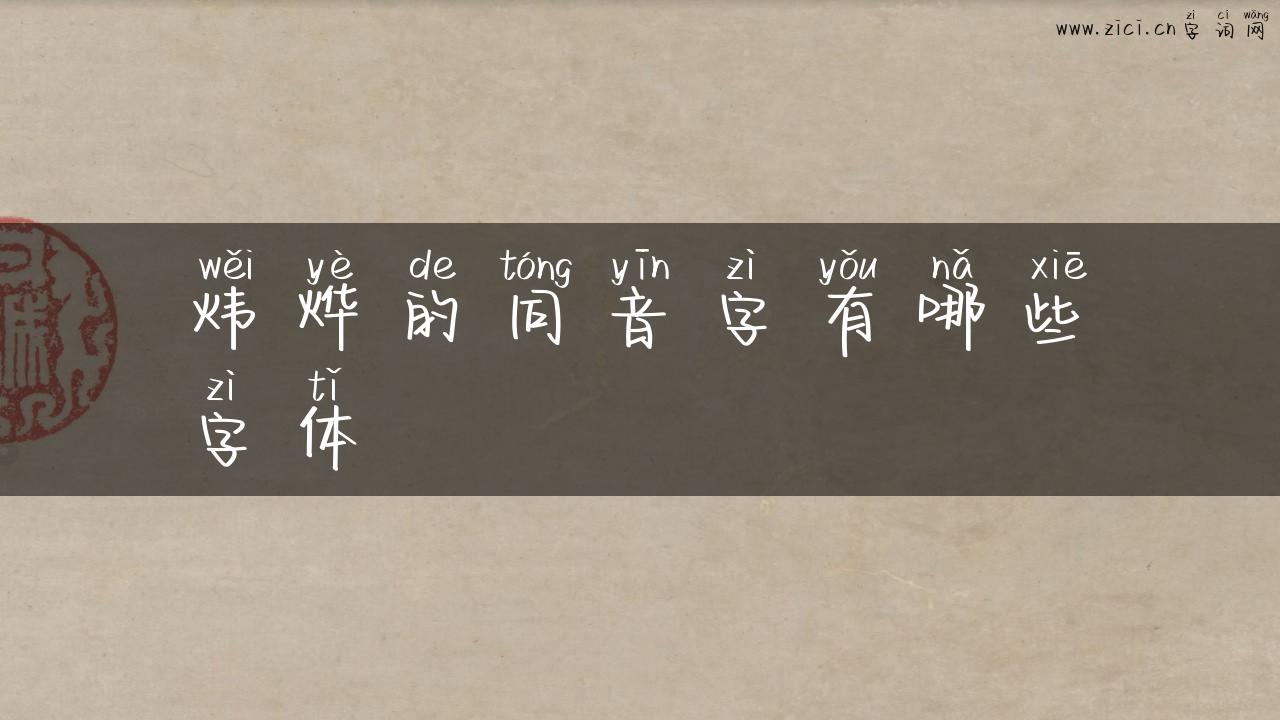 zì cí wǎng
www.zici.cn字词网
wěi yè de tóng yīn zì yǒu nǎ xiē
炜烨的同音字有哪些
zì tǐ
字体